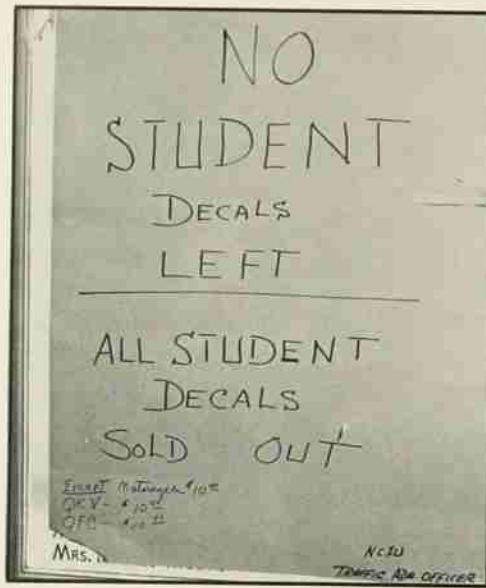 NO
STUDENT
DECALS
LEFT
ALL STUDENT
DECALS
SOLD OUT
EXCEPT Motorcycle $10
$10
$10
MRS.
NCSU
TRAFFIC ADM OFFICER